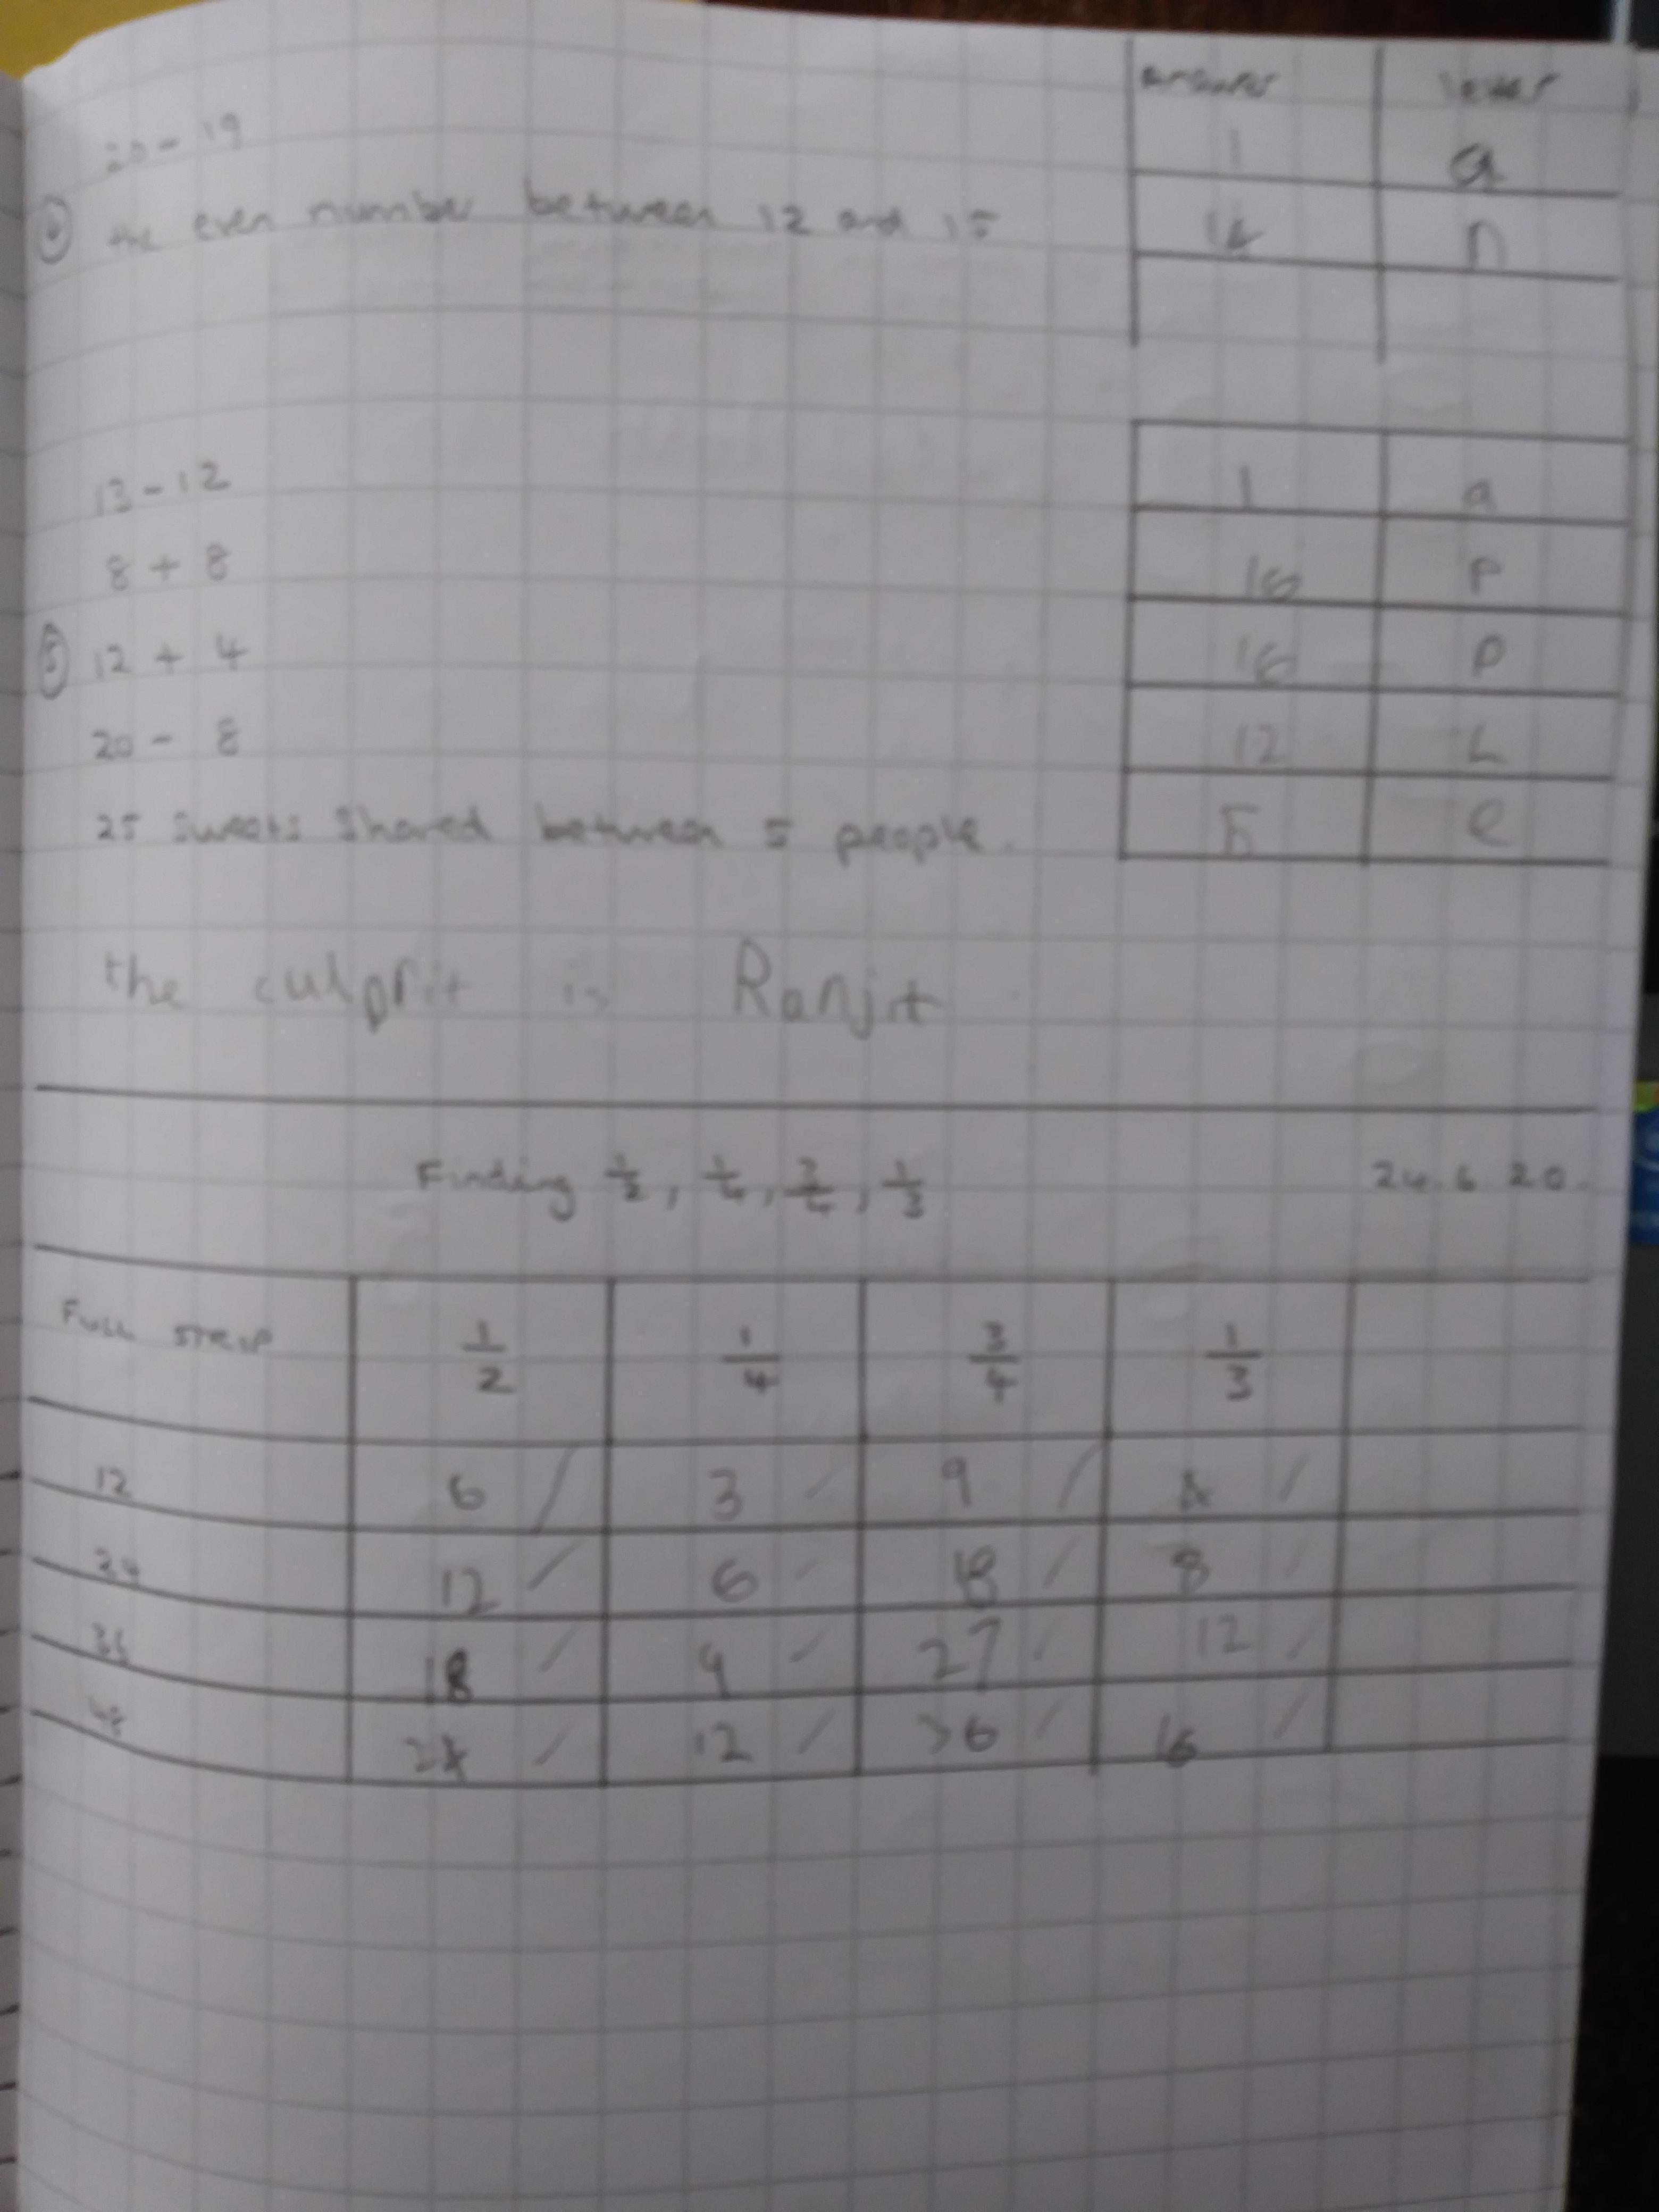 answer letter
20 - 19 1 a
④ the even number between 12 and 15 14 n
13 - 12 1 a
8 + 8 16 P
⑤ 12 + 4 16 P
20 - 8 12 L
25 sweets shared between 5 people. 5 e
the culprit is Ranjit
Finding 1/2, 1/4, 3/4, 1/3 24.6 20.
FULL STRIP 1/2 1/4 3/4 1/3
12 6 / 3 / 9 / 4 /
24 12 / 6 / 18 / 8 /
36 18 / 9 / 27 / 12 /
48 24 / 12 / 36 / 16 /